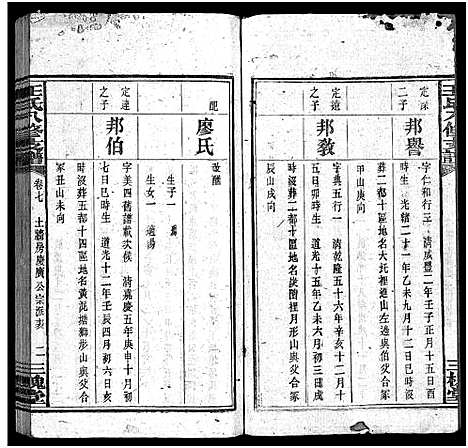 王氏八修支譜
三槐堂
定深
二子
邦譽
字仁和行三 清咸豐二年壬子正月十五日酉
時生 光緒二十一年乙未九月十二日巳時
葬二都十區地名大坑裡道山左邊與父合
甲山庚向
定達
之子
邦教
字典五行一 清乾隆五十六年辛亥十二月十
五日卯時生 道光十五年乙未六月初三日
時沒葬二都十區地名 裡形山與父合
辰山戌向
配
廖氏
改醮
生子一
生女一 適湯
定達
之子
邦伯
字美四舊譜載次侯 清嘉慶五年庚申十月初
時生 道光十二年壬辰四月初六日亥
時沒葬五都十四區地名黃泥塘獅形山與父合
冢丑山未向
王氏八修支譜
卷七 土牆房慶廣公宗派表
二 三槐堂